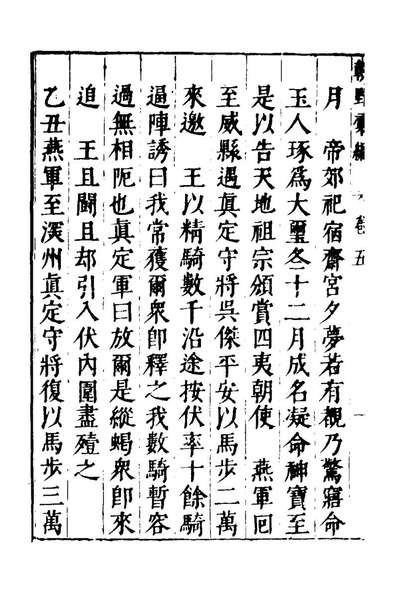 朝野彙編 卷五 一
月　帝郊祀宿齋宮夕夢若有覩乃驚寤命
玉人琢爲大璽冬十二月成名凝命神寶至
是以告天地祖宗頒賞四夷朝使　燕軍囘
至威縣遇眞定守將吳傑平安以馬步二萬
來邀　王以精騎數千沿途按伏率十餘騎
逼陣誘曰我常獲爾衆卽釋之我數騎暫容
過無相阨也眞定軍曰放爾是縱蝎衆卽來
追　王且鬭且却引入伏內圍盡殪之
乙丑燕軍至深州眞定守將復以馬步三萬